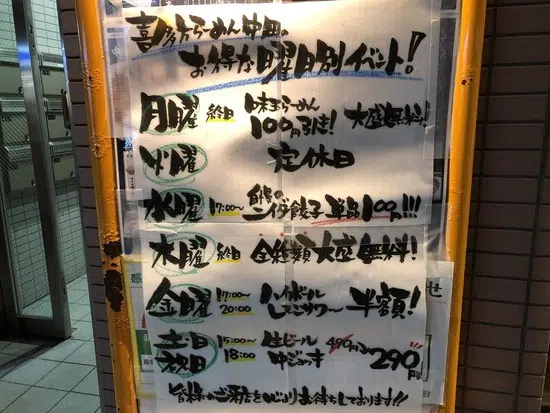 喜多方らーめん 仲田の
お得な曜日別イベント!
月曜 終日 味玉らーめん 100円引き! 大盛無料!
火曜 定休日
水曜 17:00〜 自慢のニイダ餃子 単品100円!!!
木曜 終日 全種類大盛無料!
金曜 17:00〜20:00 ハイボール レモンサワー 半額!
土日祝日 15:00〜18:00 生ビール中ジョッキ 490円→290円
皆様のご来店を心よりお待ちしております!!